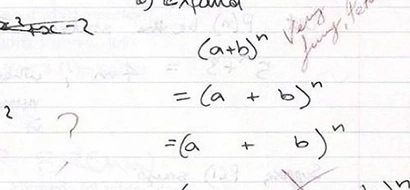 Expand
x²+x-2
(a+b)ⁿ
Very
funny, Peter
= (a + b)ⁿ
2
?
=(a + b)ⁿ